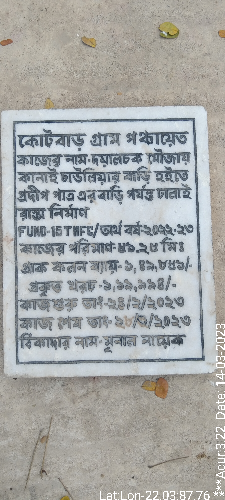 কোটবাড় গ্রাম পঞ্চায়েত
কাজের নাম-দয়ালচক মৌজায়
কানাই চাউলিয়ার বাড়ি হইতে
প্রদীপ পাত্র এর বাড়ি পর্যন্ত ঢালাই
রাস্তা নির্মাণ
FUND-15THFC/অর্থ বর্ষ-২০২২-২৩
কাজের পরিমাণ-৪৯.২৪ মিঃ
প্রাক কলন ব্যয়-১,৪৯,৮৪১/-
প্রকৃত খরচ-১,১৯,৯৯৪/-
কাজ শুরু তাং-২৪/২/২০২৩
কাজ শেষ তাং-২৮/২/২০২৩
ঠিকাদার নাম-মৃনাল নায়েক
Lat:Lon-22.03:87.76
***Acur:3.22 Date: 14-03-2023